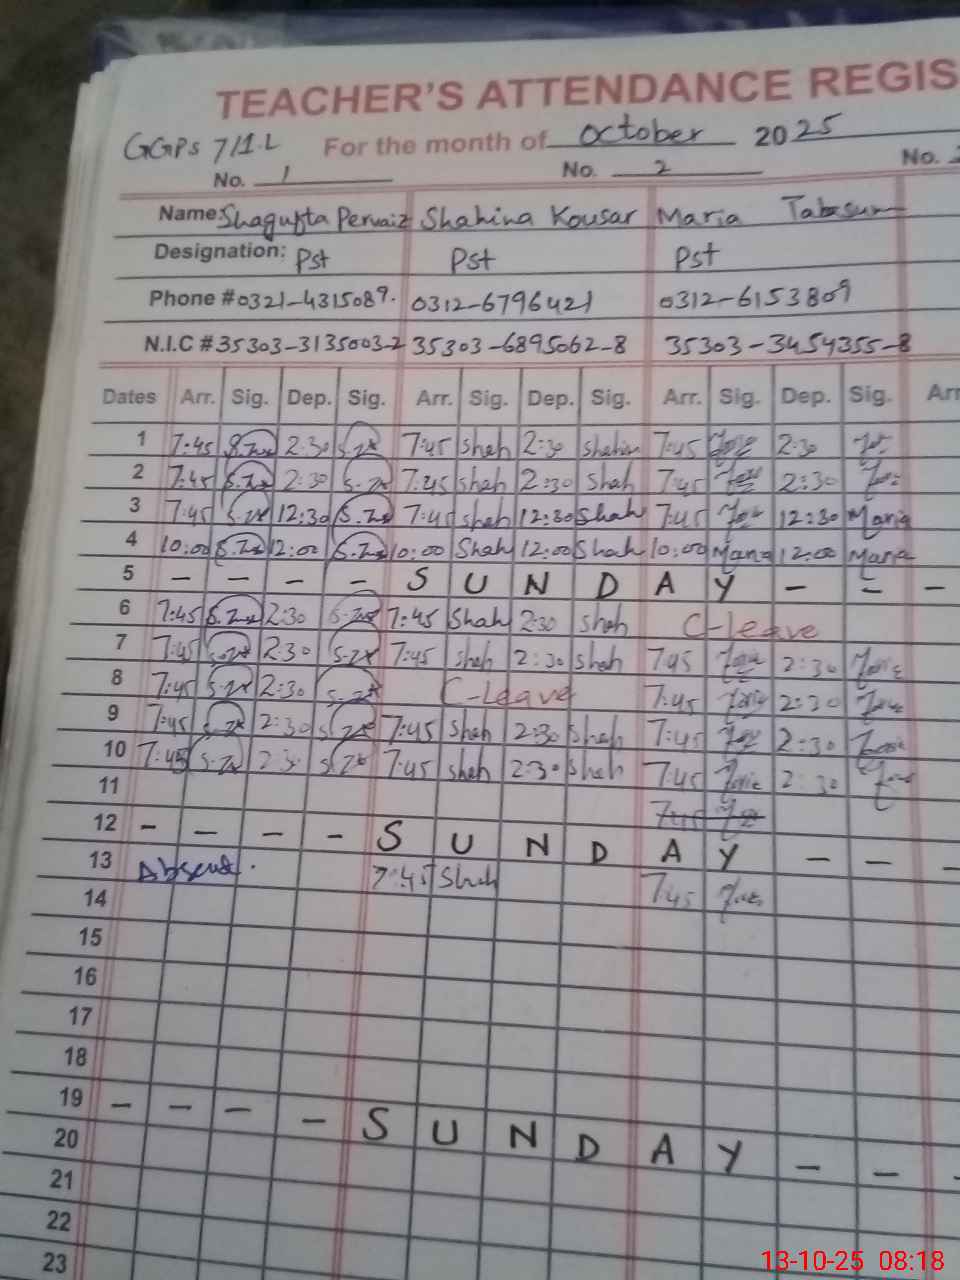 TEACHER'S ATTENDANCE REGIS
GGPS 7/1.L For the month of October 2025
No. 1 No. 2 No.
Name: Shagufta Pervaiz Shahina Kousar Maria Tabasum
Designation: Pst Pst Pst
Phone # 0321-4315089. 0312-6796421 0312-6153809
N.I.C # 35303-3135003-2 35303-6895062-8 35303-3454355-8
Dates Arr. Sig. Dep. Sig. Arr. Sig. Dep. Sig. Arr. Sig. Dep. Sig. Arr
1 7:45 2:30 7:45 shah 2:30 7:45 2:30
2 7:45 2:30 7:45 shah 2:30 shah 7:45 2:30
3 7:45 12:30 7:45 shah 12:30 shah 7:45 12:30 Maria
4 10:00 12:00 10:00 Shah 12:00 Shah 10:00 Maria 12:00 Maria
5 - - - - S U N D A Y - - -
6 7:45 2:30 7:45 Shah 2:30 shah C-leave
7 7:45 2:30 7:45 shah 2:30 shah 7:45 2:30
8 7:45 2:30 C-Leave 7:45 2:30
9 7:45 2:30 7:45 Shah 2:30 Shah 7:45 2:30
10 7:45 2:30 7:45 shah 2:30 shah 7:45 2:30
11 7:45
12 - - - - S U N D A Y - - -
13 Absent. 7:45 Shah 7:45
14
15
16
17
18
19 - - - - S U N D A Y - - -
20
21
22
23
13-10-25 08:18